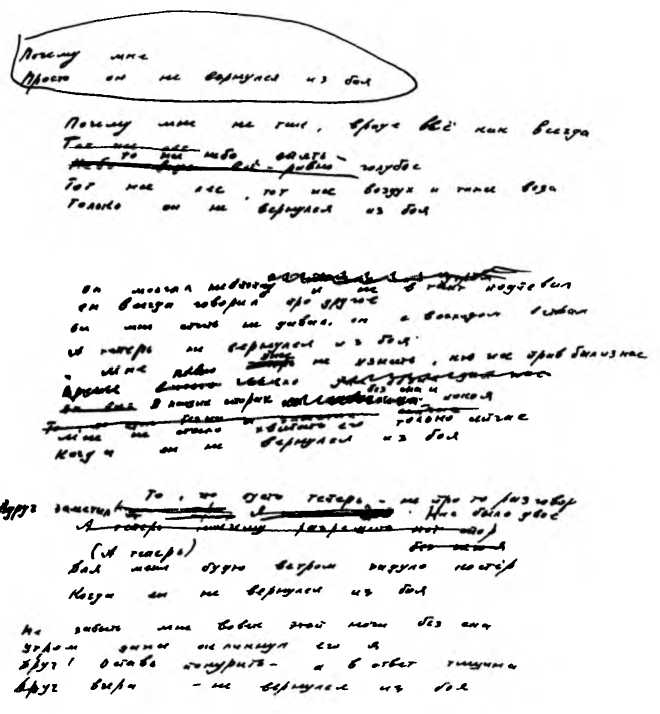 Почему мне
Просто он не вернулся из боя
Почему мне не так, вроде всё как всегда
Тот же лес
то же небо опять –
Небо всё равно голубое
Тот же лес, тот же воздух и та же вода
Только он не вернулся из боя
он молчал невпопад и не в такт подпевал
он всегда говорил про другое
он мне спать не давал, он с восходом вставал
А теперь не вернулся из боя
Мне не узнать, кто же прав был из нас
В наших спорах без сна и покоя
Мне не стало хватать его только сейчас
Когда он не вернулся из боя
То, что пусто теперь, – не про то разговор
Вдруг заметил я Нас было двое
А теперь
(А теперь)
Для меня будто ветром задуло костёр
Когда он не вернулся из боя
Не забыть мне вовек этой ночи без сна
Утром окликнул его я
Друг! Оставь покурить – а в ответ тишина
Друг вчера – не вернулся из боя